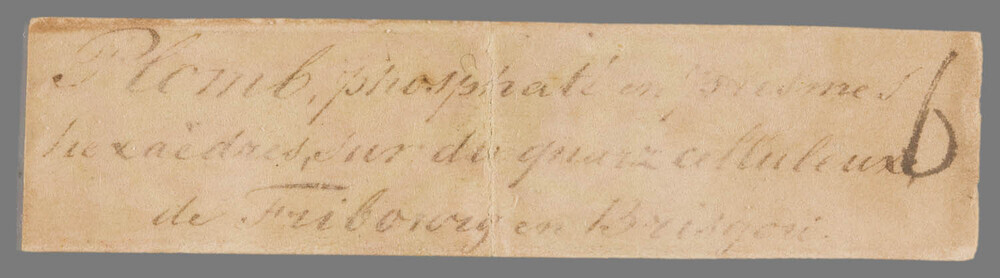 Plomb, phosphaté en prismes
hexaëdres, sur du quarz celluleux, 6
de Fribourg en Brisgou.